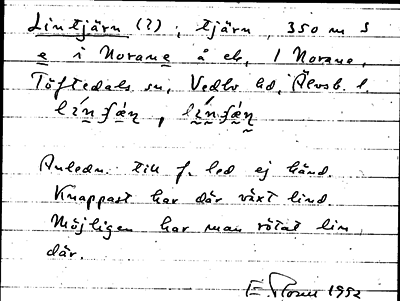 Lintjärn (?), tjärn, 350 m S
e i Norane å ek, 1 Norane,
Töftedals sn, Vedbo hd, Älvsb. l.
Anledn. till f. led ej känd.
Knappast har där växt lind.
Möjligen har man rötat lin
där.
1952